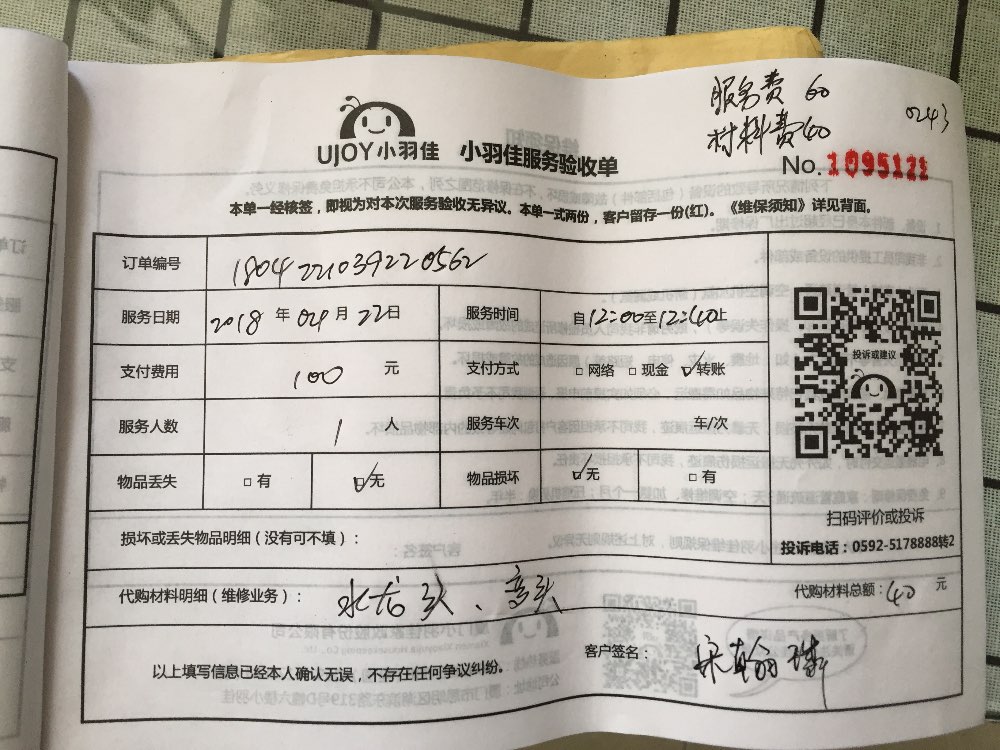 服务费 60
材料费40
0243
UJOY小羽佳 小羽佳服务验收单
No.1095121
本单一经核签，即视为对本次服务验收无异议。本单一式两份，客户留存一份(红)。《维保须知》详见背面。
订单编号 1804221039220562
服务日期 2018 年 04 月 22日 服务时间 自12:00至12:40止
支付费用 100 元 支付方式 □网络 □现金 ☑转账
服务人数 1 人 服务车次 车/次
物品丢失 □有 ☑无 物品损坏 ☑无 □有
投诉或建议
扫码评价或投诉
投诉电话：0592-5178888转2
损坏或丢失物品明细（没有可不填）：
代购材料明细（维修业务）：水龙头、弯头 代购材料总额：40 元
以上填写信息已经本人确认无误，不存在任何争议纠纷。 客户签名：